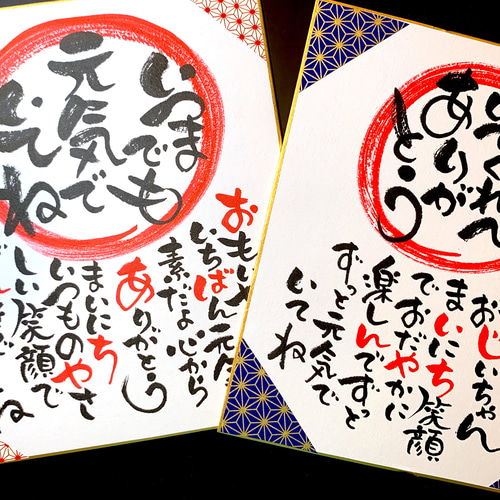 いつまでも
元気で
いてね
おもいや
いちばん元
素だよ心から
ありがとう
まいにち
いつものやさ
しい笑顔で
くれて
ありが
とう
おじいちゃん
まいにち笑顔
でおだやかに
楽しんでずっと
ずっと元気で
いてね